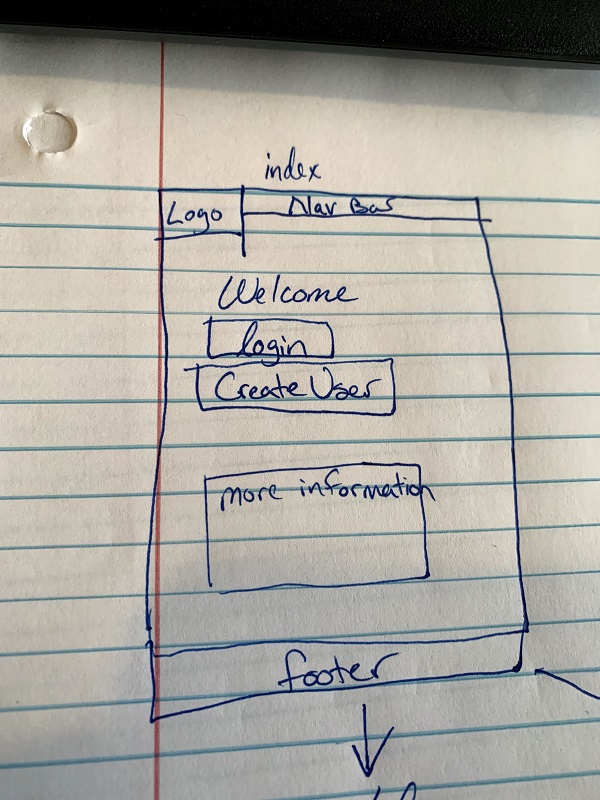 index
Logo Nav Bar
Welcome
login
Create User
more information
footer